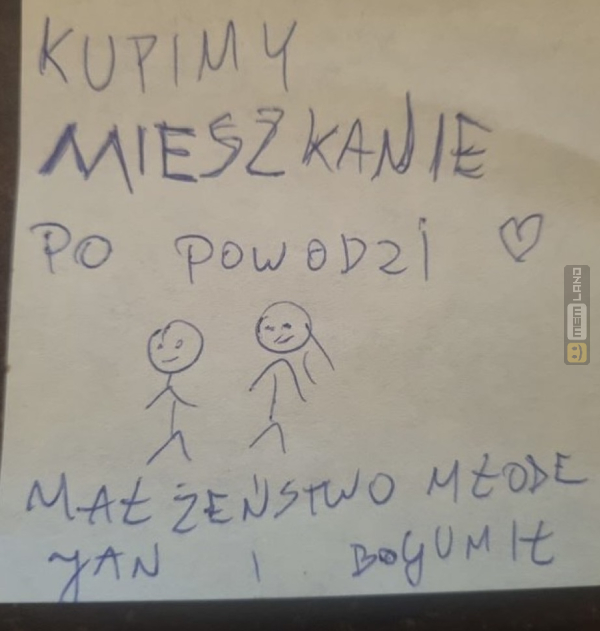 KUPIMY
MIESZKANIE
PO POWODZI ♡
MAŁŻEŃSTWO MŁODE
JAN I BOGUMIŁ
MEM LAND